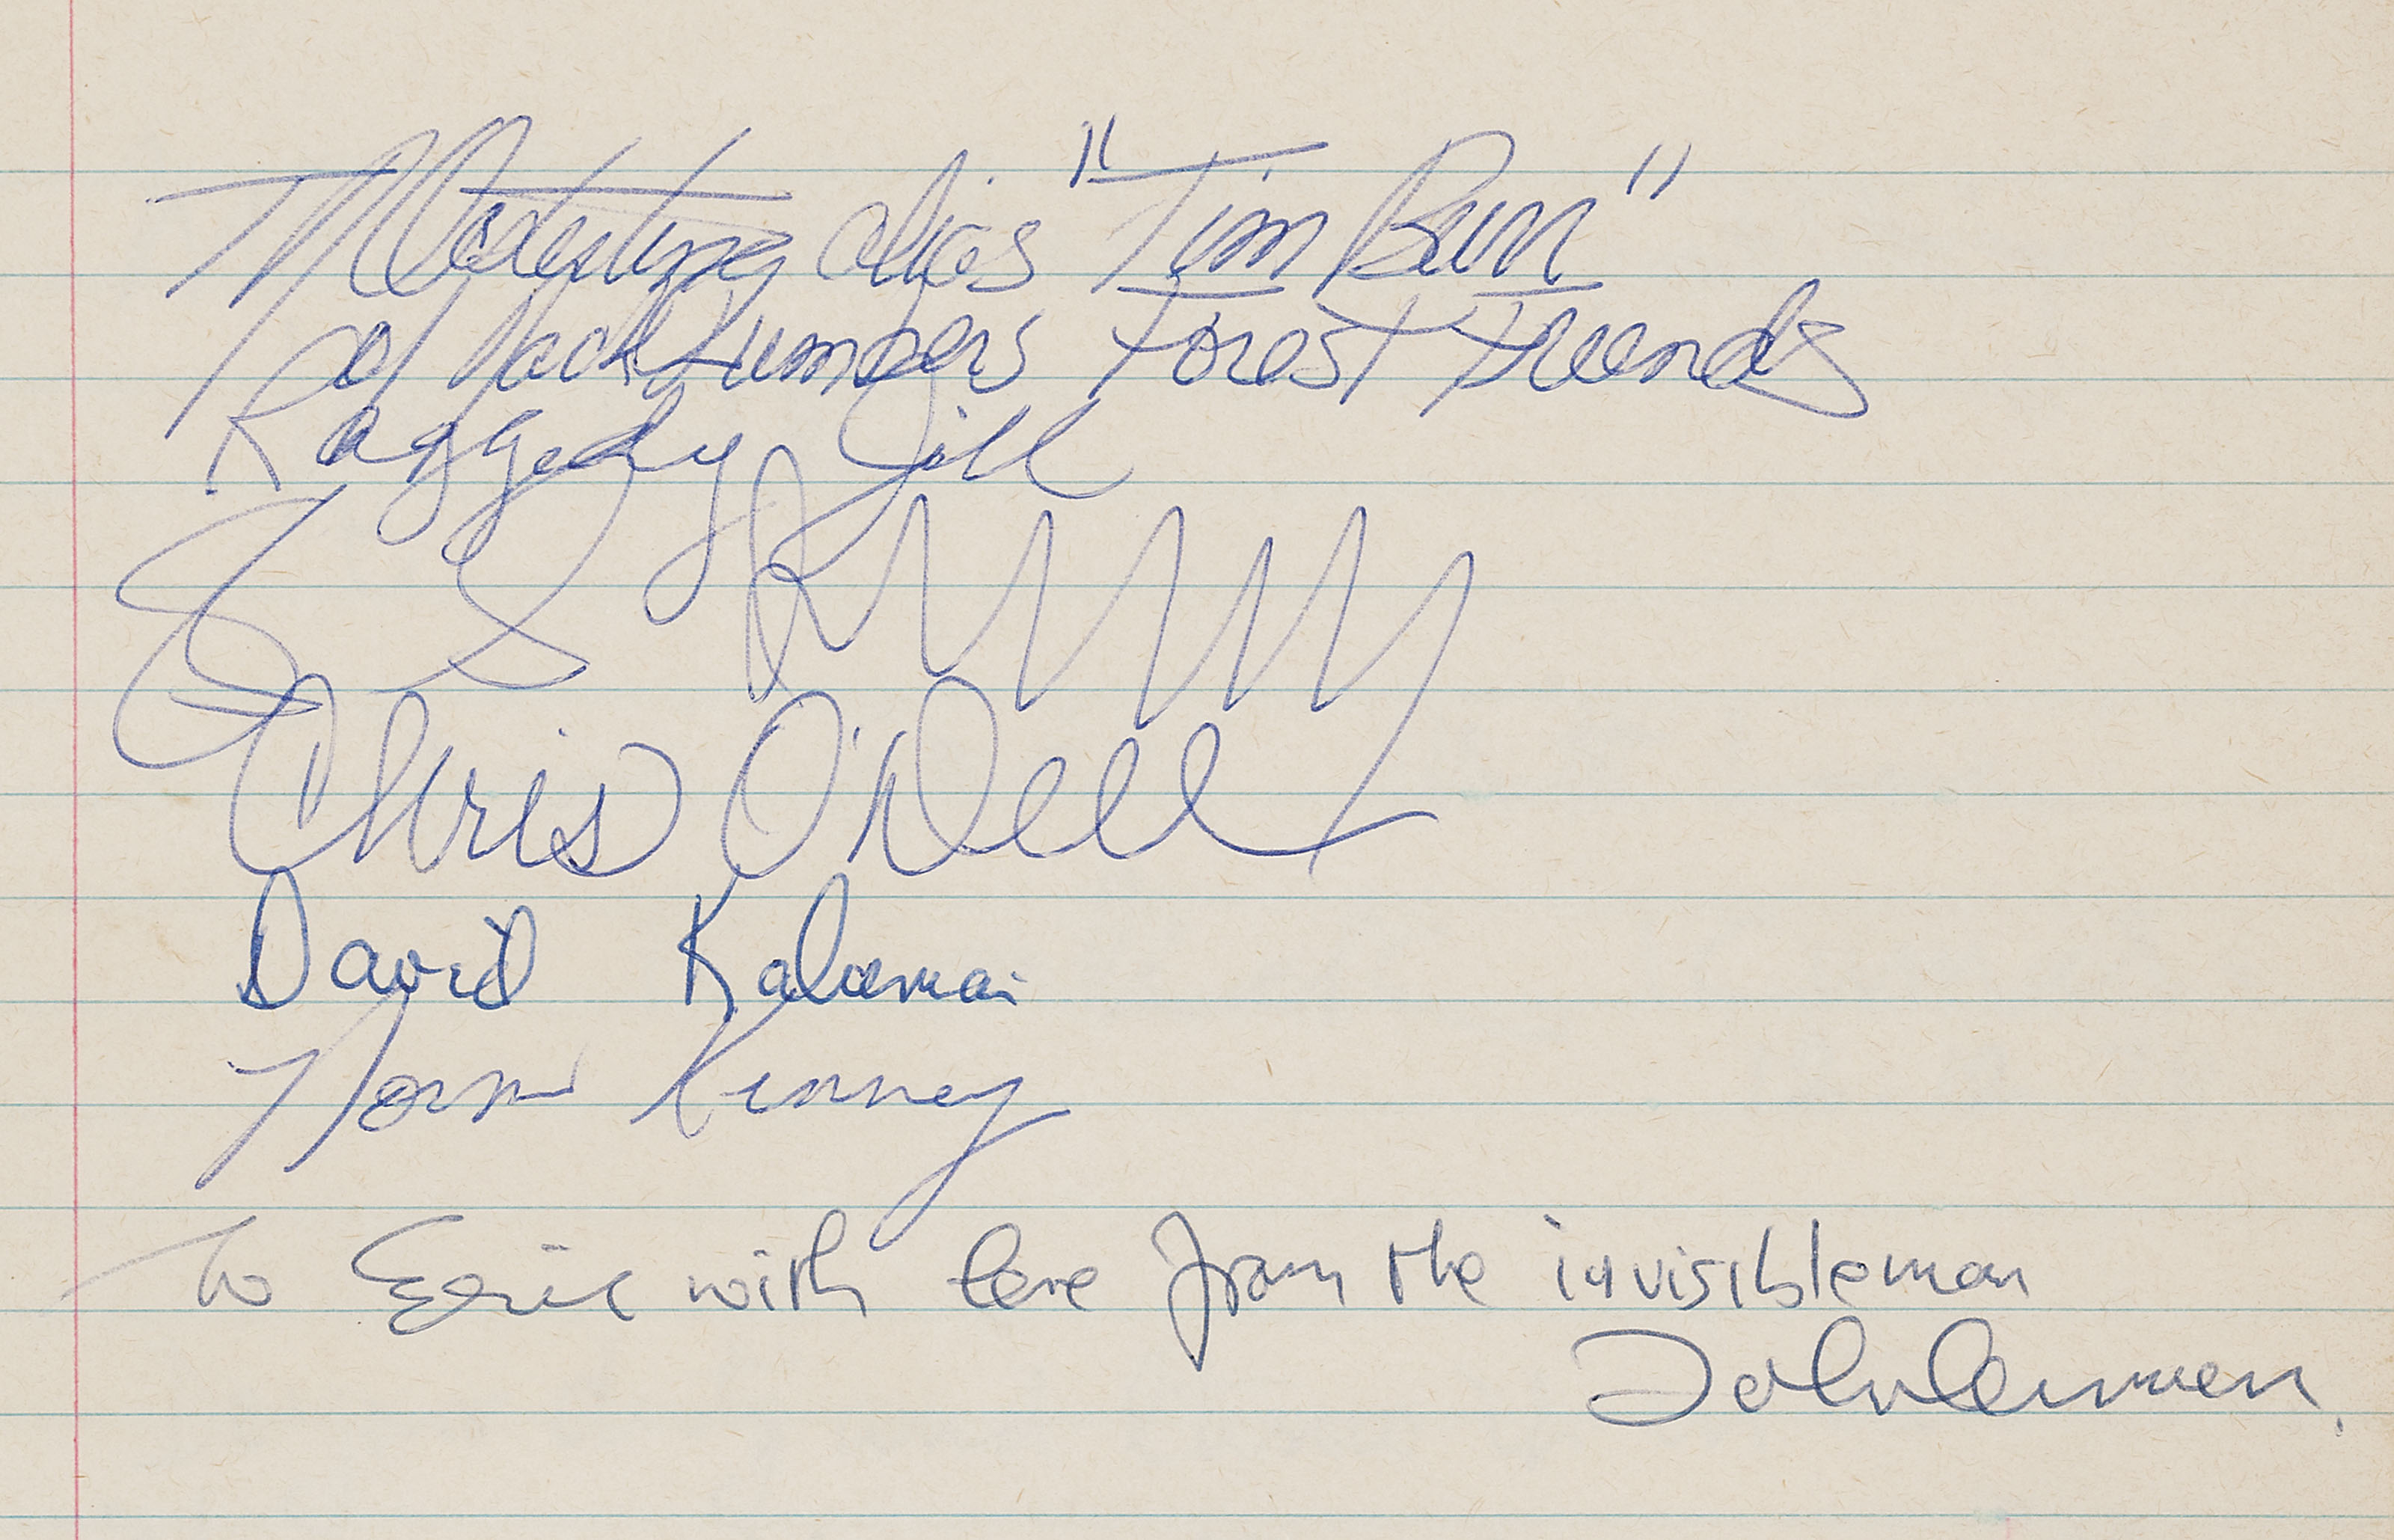 alias "Tim Burr"
of Jack Lumbers Forest Friends
Raggedy Jill
Chris O'Dell
David Kalumai
Norm Kinney
To Eric with love from the invisibleman
John Lennon.